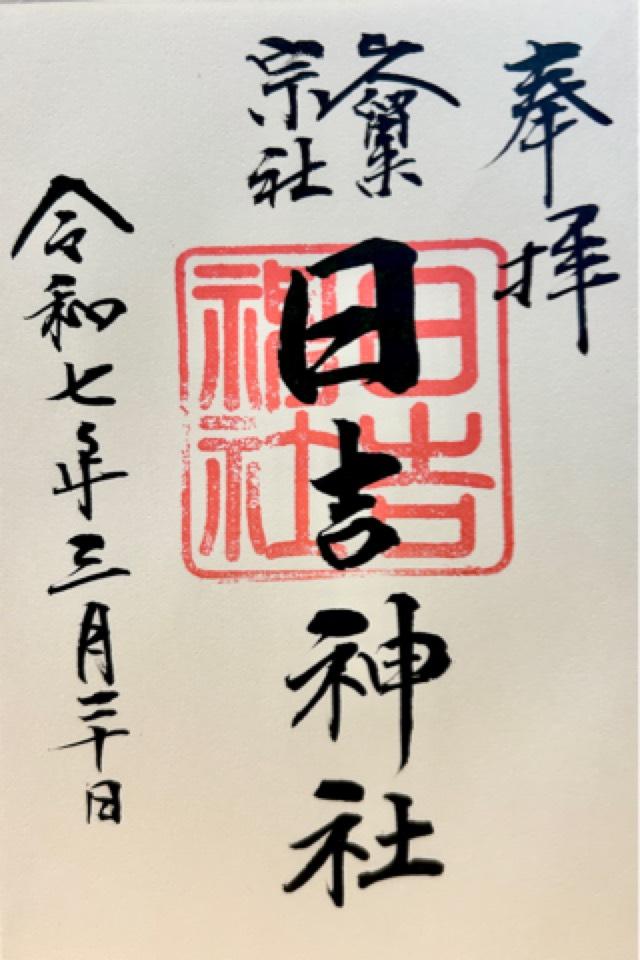 奉拝
久留米
宗社
日吉神社
日吉
神社
令和七年三月二十日